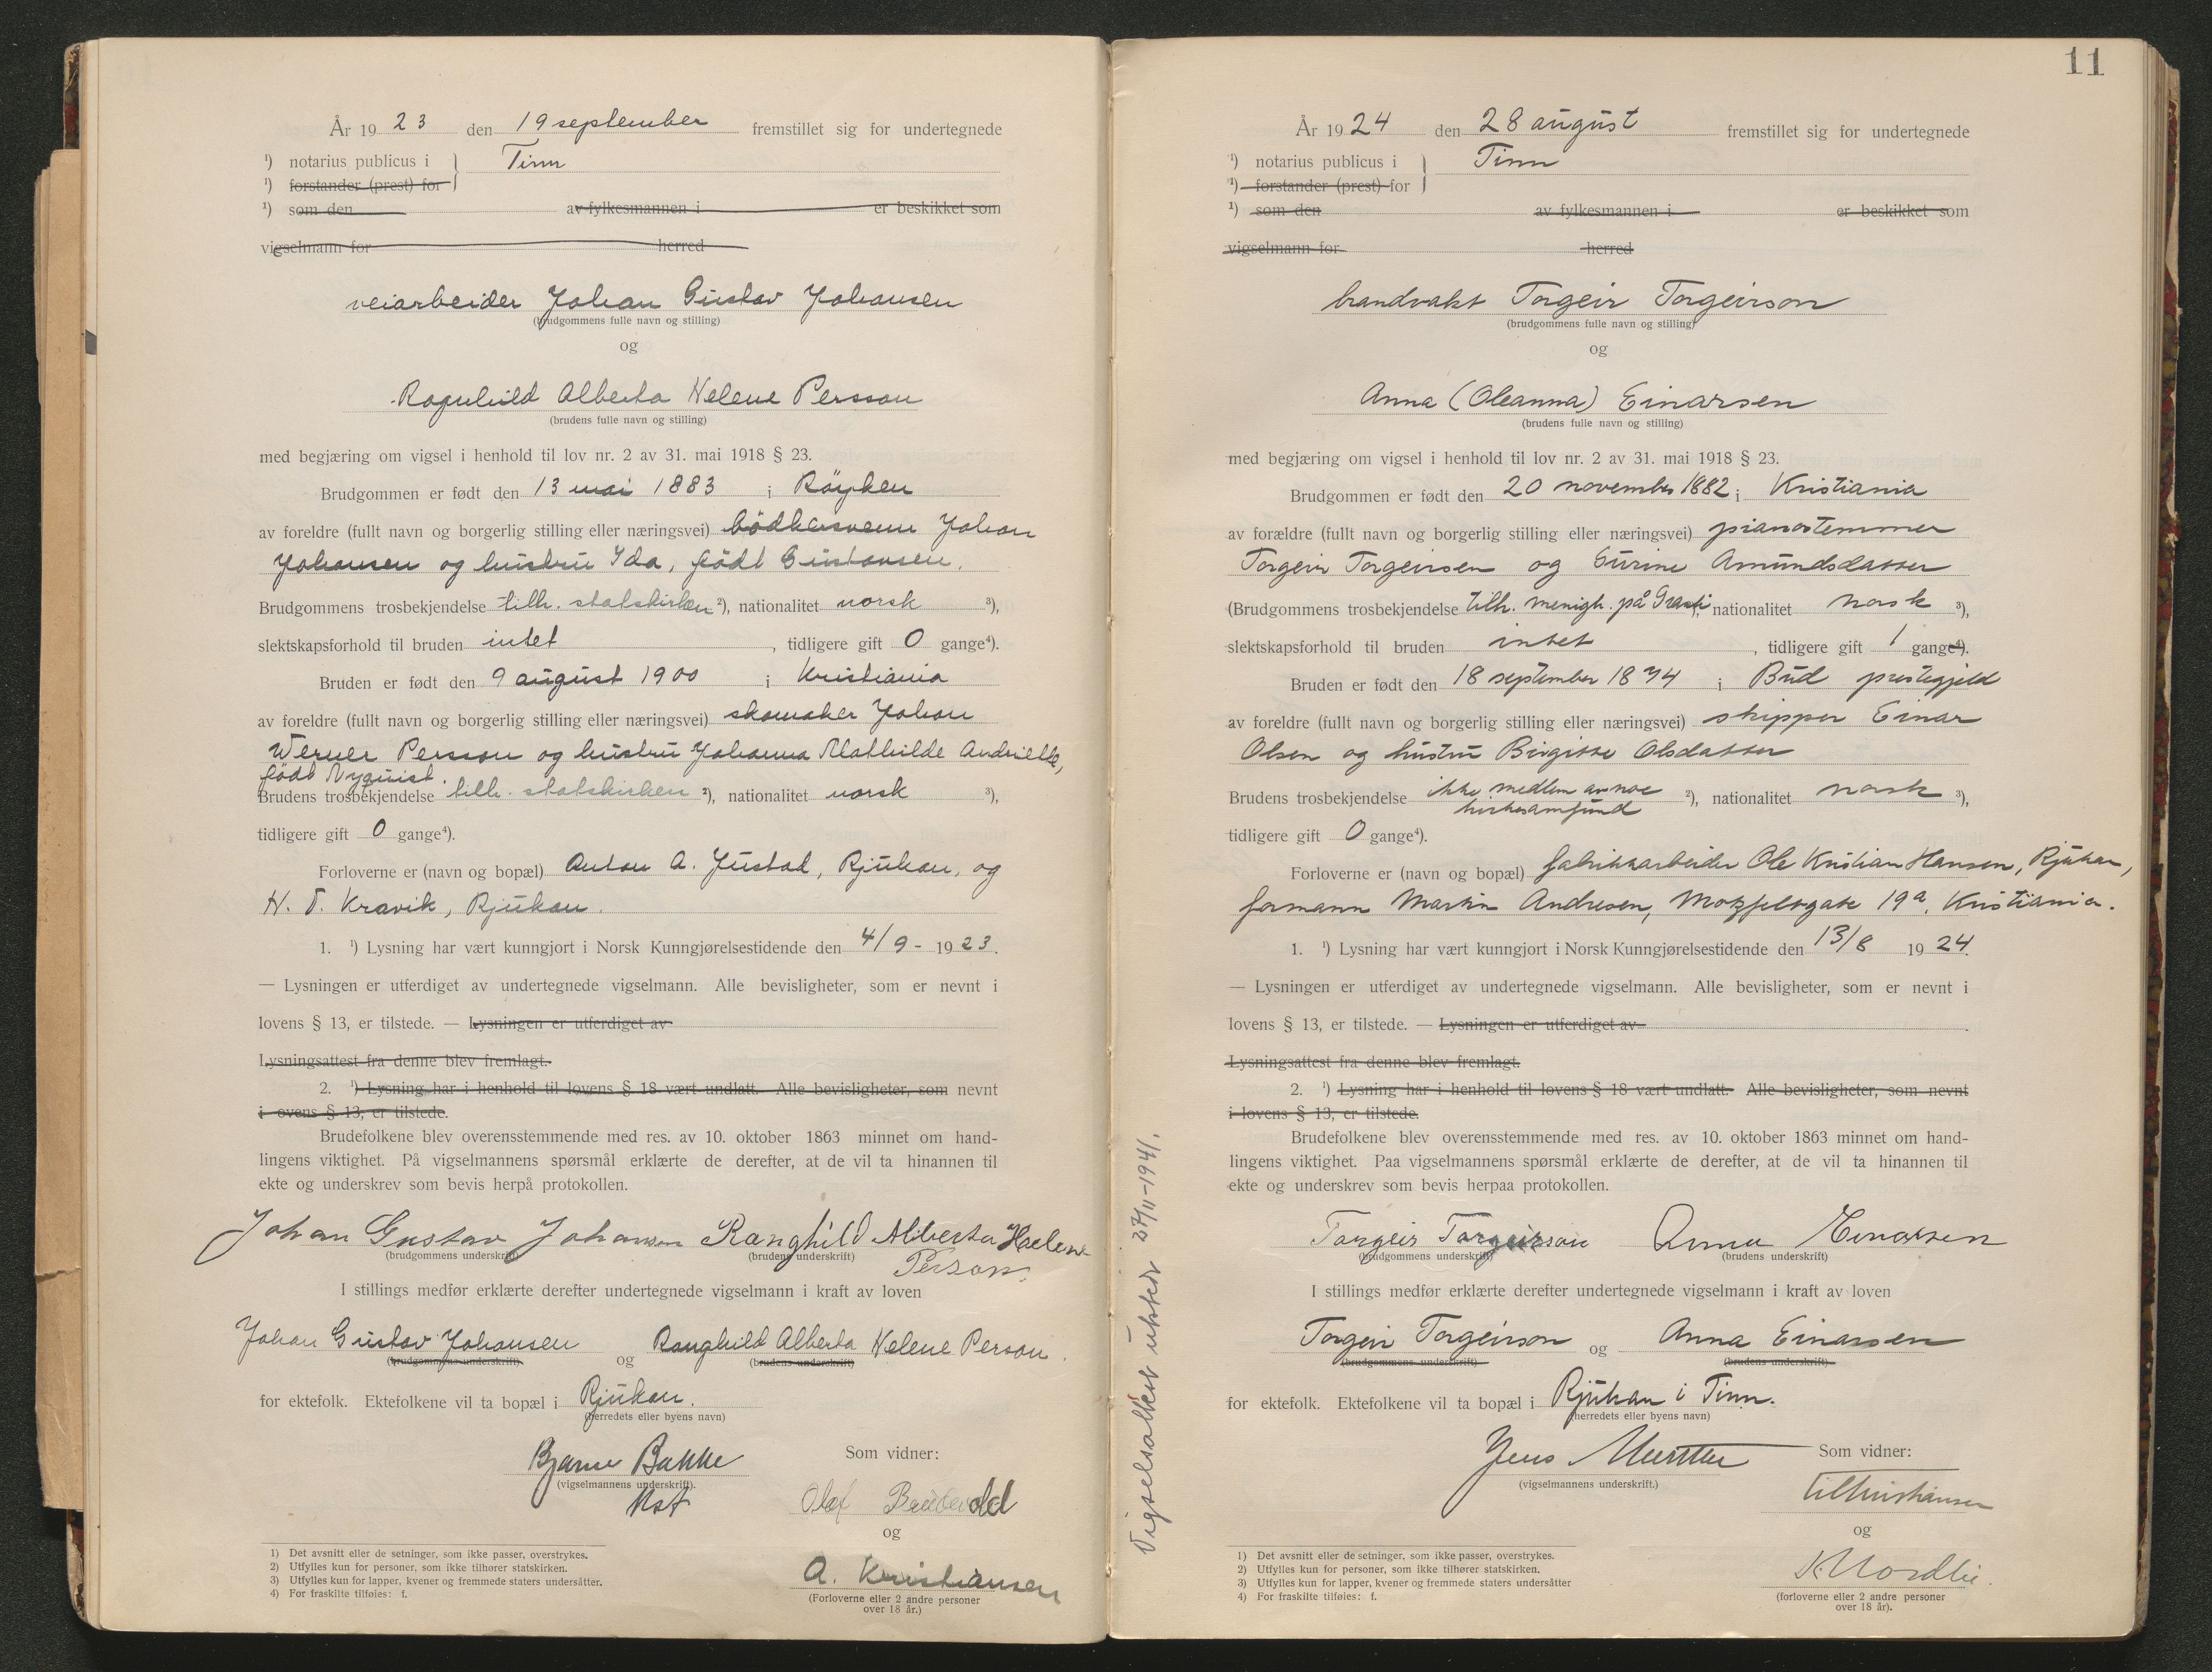 År 1923 den 19 september fremstillet sig for undertegnede
¹) notarius publicus i } Tinn
¹) forstander (prest) for
¹) som den av fylkesmannen i er beskikket som
vigselmann for herred
veiarbeider Johan Gustav Johansen
(brudgommens fulle navn og stilling)
og
Ragnhild Alberta Helene Persson
(brudens fulle navn og stilling)
med begjæring om vigsel i henhold til lov nr. 2 av 31. mai 1918 § 23.
Brudgommen er født den 13 mai 1883 i Röyken
av foreldre (fullt navn og borgerlig stilling eller næringsvei) bödkersvenn Johan
Johansen og hustru Ida, født Gustavsen.
Brudgommens trosbekjendelse tilh. statskirken ²), nationalitet norsk ³),
slektskapsforhold til bruden intet, tidligere gift 0 gange⁴).
Bruden er født den 9 august 1900 i Kristiania
av foreldre (fullt navn og borgerlig stilling eller næringsvei) skomaker Johan
Werner Persson og hustru Johanna Mathilde Andrielle,
født Nyquist.
Brudens trosbekjendelse tilh. statskirken ²), nationalitet norsk ³),
tidligere gift 0 gange⁴).
Forloverne er (navn og bopæl) Anton A. Justad, Rjukan, og
H. T. Kravik, Rjukan.
1. ¹) Lysning har vært kunngjort i Norsk Kunngjørelsestidende den 4/9 - 1923.
— Lysningen er utferdiget av undertegnede vigselmann. Alle bevisligheter, som er nevnt i
lovens § 13, er tilstede. — Lysningen er utferdiget av
Lysningsattest fra denne blev fremlagt.
2. ¹) Lysning har i henhold til lovens § 18 vært undlatt. Alle bevisligheter, som nevnt
i ovens § 13, er tilstede.
Brudefolkene blev overensstemmende med res. av 10. oktober 1863 minnet om hand-
lingens viktighet. På vigselmannens spørsmål erklærte de derefter, at de vil ta hinannen til
ekte og underskrev som bevis herpå protokollen.
Johan Gustav Johansen Ranghild Aliberta Haelene
(brudgommens underskrift) (brudens underskrift)
Person.
I stillings medfør erklærte derefter undertegnede vigselmann i kraft av loven
Johan Gustav Johansen og Ranghild Alberta Helene Person.
(brudgommens underskrift) (brudens underskrift)
for ektefolk. Ektefolkene vil ta bopæl i Rjukan.
(herredets eller byens navn)
Bjarne Bakke Som vidner:
(vigselmannens underskrift).
Kst Olaf
og
A. Kristiansen
(Forloverne eller 2 andre personer
over 18 år.)
1) Det avsnitt eller de setninger, som ikke passer, overstrykes.
2) Utfylles kun for personer, som ikke tilhører statskirken.
3) Utfylles kun for lapper, kvener og fremmede staters undersåtter.
4) For fraskilte tilføies: f.
11
År 1924 den 28 august fremstillet sig for undertegnede
¹) notarius publicus i } Tinn
¹) forstander (prest) for
¹) som den av fylkesmannen i er beskikket som
vigselmann for herred
brandvakt Torgeir Torgeirson
(brudgommens fulle navn og stilling)
og
Anna (Oleanna) Einarsen
(brudens fulle navn og stilling)
med begjæring om vigsel i henhold til lov nr. 2 av 31. mai 1918 § 23.
Brudgommen er født den 20 november 1882 i Kristiania
av forældre (fullt navn og borgerlig stilling eller næringsvei) pianostemmer
Torgeir Torgeirsen og Gurine Amundsdatter
(Brudgommens trosbekjendelse tilh. menigh. på, nationalitet norsk ³),
slektskapsforhold til bruden intet, tidligere gift 1 gange⁴).
Bruden er født den 18 september 1874 i Bud prestegjeld
av foreldre (fullt navn og borgerlig stilling eller næringsvei) skipper Einar
Olsen og hustru Birgitte Olsdatter
Brudens trosbekjendelse ikke medlem av noe ²), nationalitet norsk ³),
kirkesamfund
tidligere gift 0 gange⁴).
Forloverne er (navn og bopæl) fabrikkarbeider Ole Kristian Hansen, Rjukan,
formann Martin Andresen, Motzfeltsgate 19ª, Kristiania.
1. ¹) Lysning har vært kunngjort i Norsk Kunngjørelsestidende den 13/8 1924.
— Lysningen er utferdiget av undertegnede vigselmann. Alle bevisligheter, som er nevnt i
lovens § 13, er tilstede. — Lysningen er utferdiget av .
Lysningsattest fra denne blev fremlagt.
2. ¹) Lysning har i henhold til lovens § 18 vært undlatt. Alle bevisligheter, som nevnt
i lovens § 13, er tilstede.
Brudefolkene blev overensstemmende med res. av 10. oktober 1863 minnet om hand-
lingens viktighet. Paa vigselmannens spørsmål erklærte de derefter, at de vil ta hinannen til
ekte og underskrev som bevis herpaa protokollen.
Torgeir Torgeirson Anna Einarsen
(brudgommens underskrift) (brudens underskrift)
I stillings medfør erklærte derefter undertegnede vigselmann i kraft av loven
Torgeir Torgeirson og Anna Einarsen
(brudgommens underskrift) (brudens underskrift)
for ektefolk. Ektefolkene vil ta bopæl i Rjukan i Tinn.
(herredets eller byens navn)
Jens Som vidner:
(vigselmannens underskrift.)
og
K. Nordli.
(forloverne eller 2 andre personer
over 18 år).
1) Det avsnitt eller de setninger, som ikke passer, overstrykes.
2) Utfylles kun for personer, som ikke tilhører statskirken.
3) Utfylles kun for lapper, kvener og fremmede staters undersåtter
4) For fraskilte tilføies: f.
Vigselsattest utsted 27/11-1941.